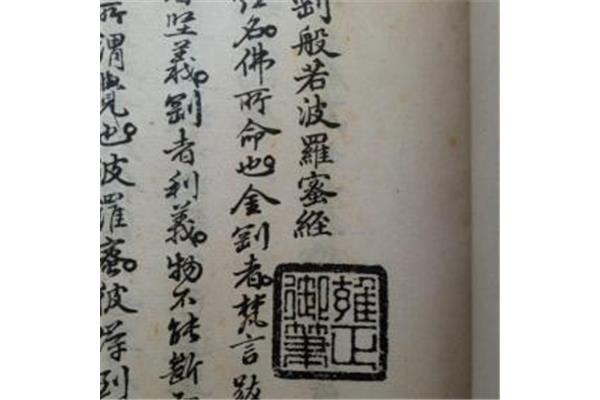 剛般若波羅蜜經
名佛所命也金剛者梵言跋
堅義剛者利義物不能斷
所謂覺也波羅蜜彼岸到
雍正
御筆